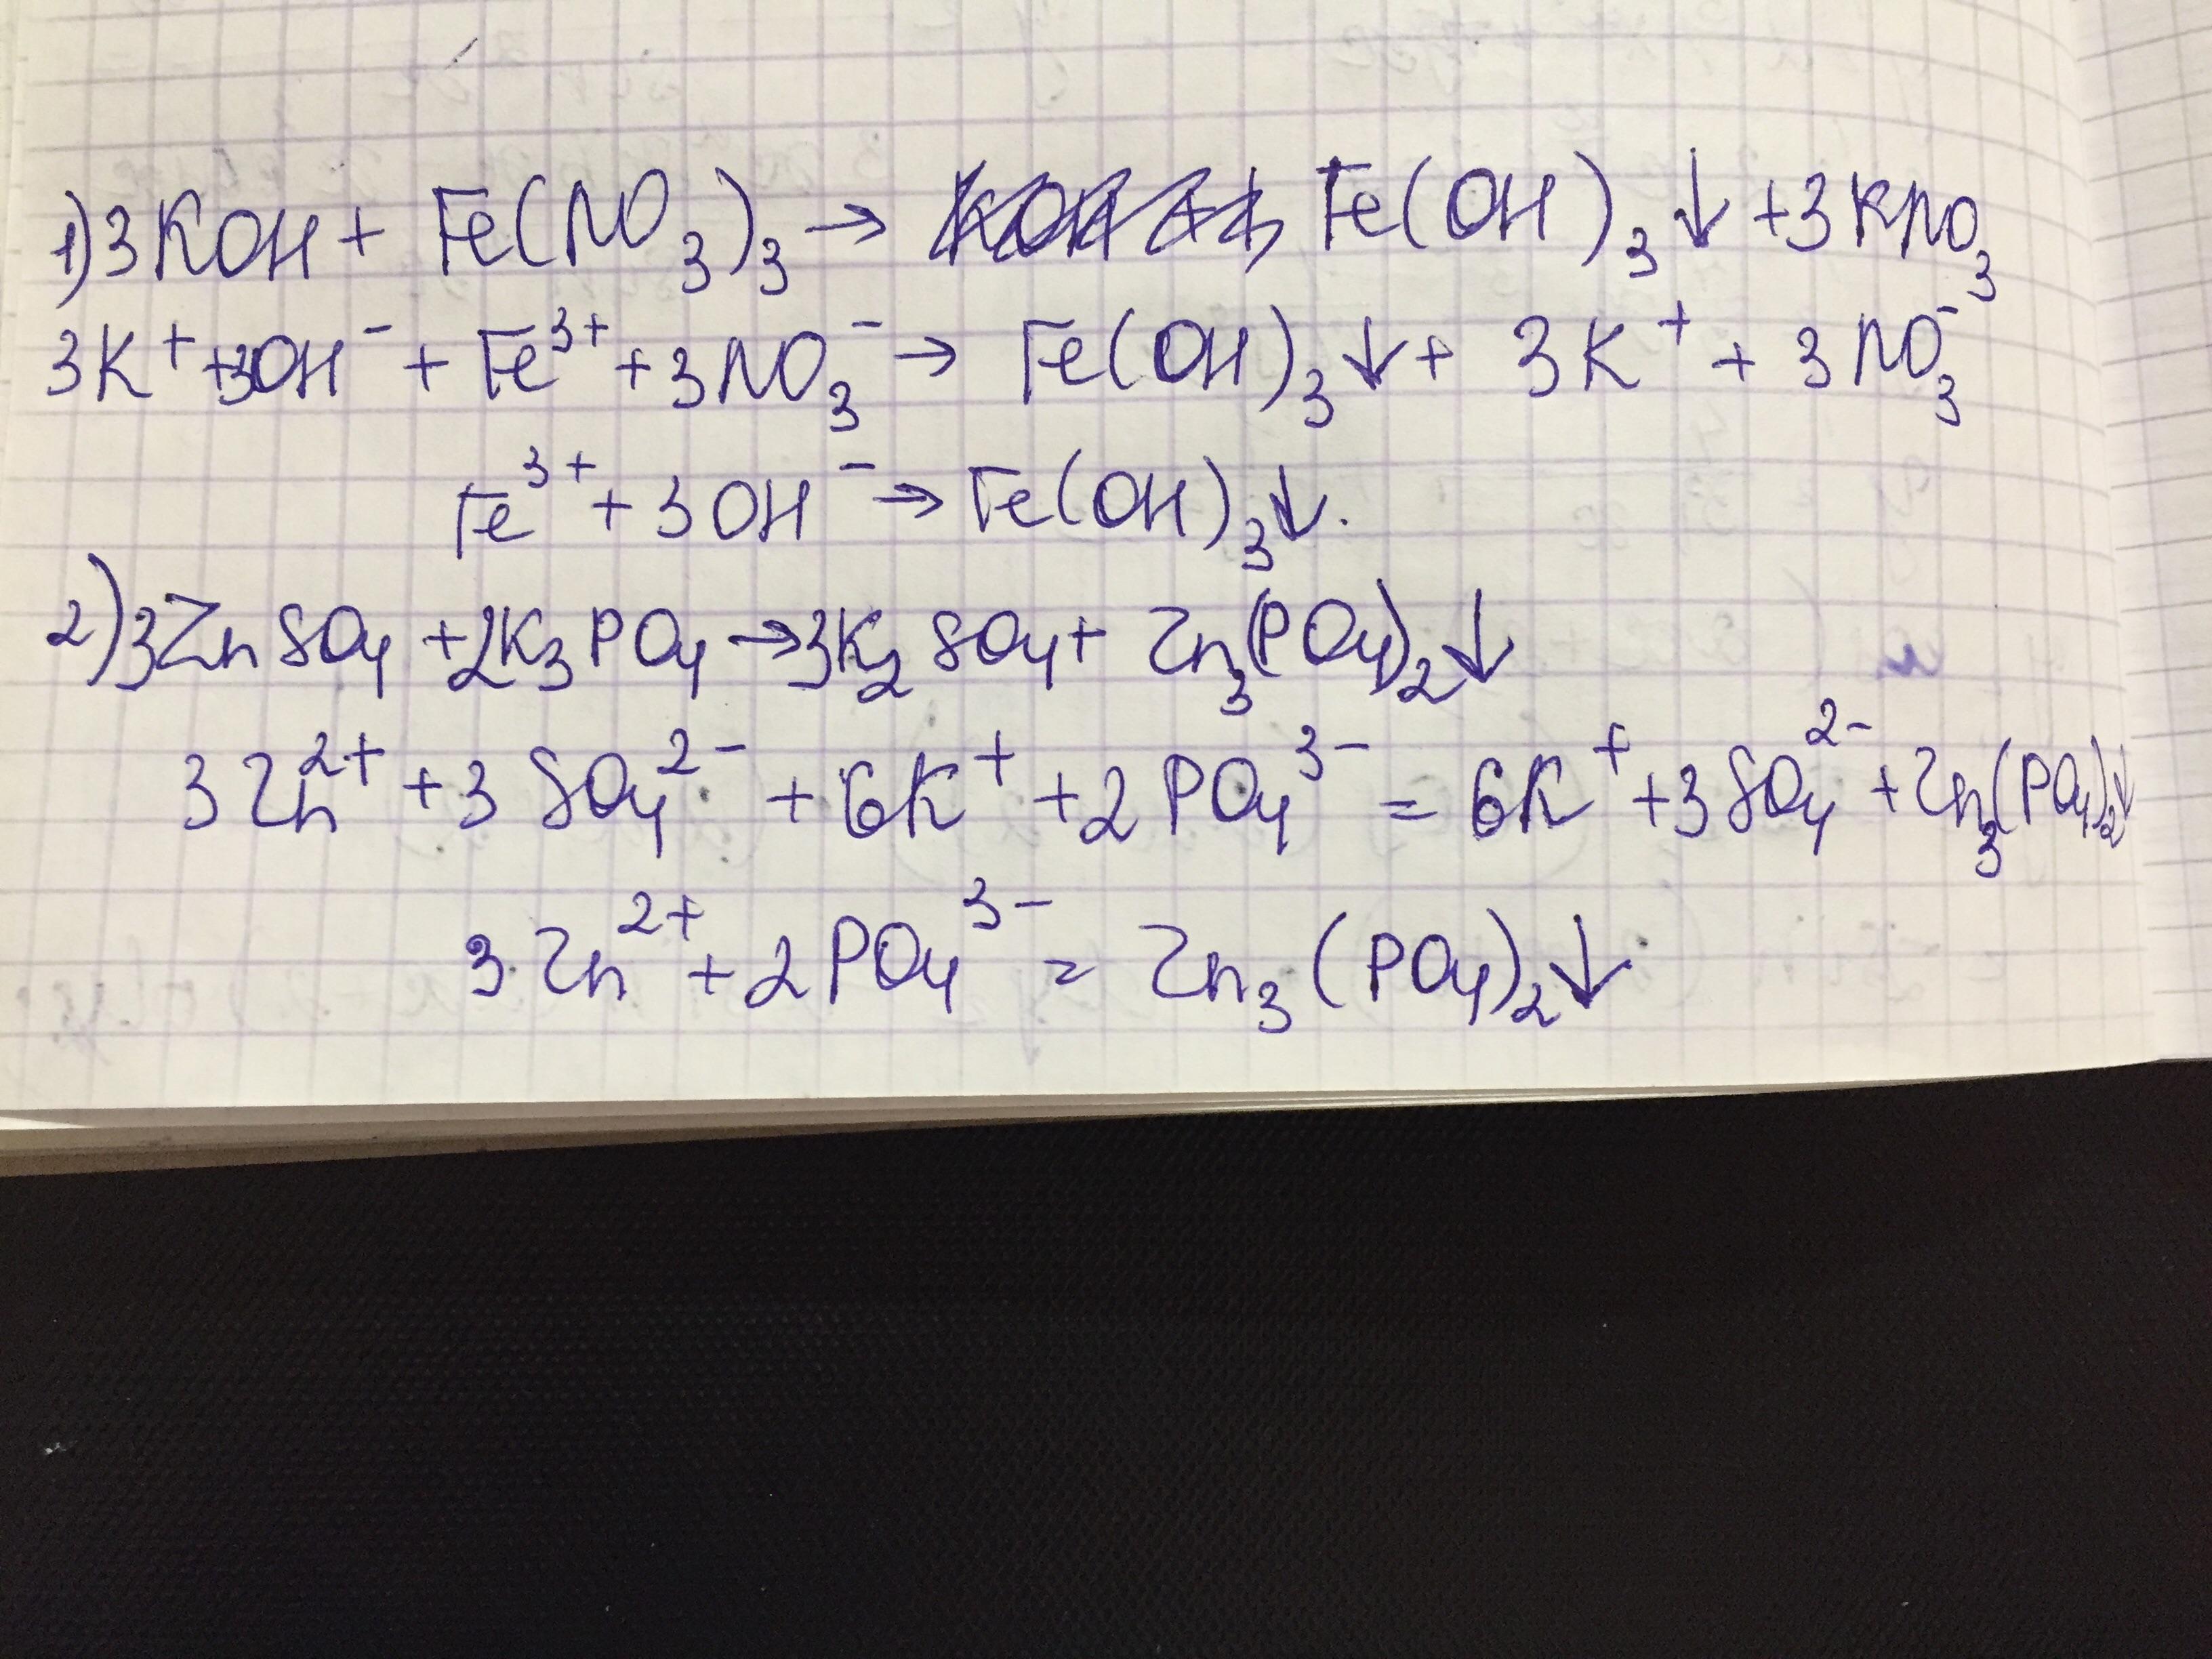 1) 3KOH + Fe(NO₃)₃ → Fe(OH)₃↓ + 3KNO₃
3K⁺ + 3OH⁻ + Fe³⁺ + 3NO₃⁻ → Fe(OH)₃↓ + 3K⁺ + 3NO₃⁻
Fe³⁺ + 3OH⁻ → Fe(OH)₃↓.
2) 3ZnSO₄ + 2K₃PO₄ → 3K₂SO₄ + Zn₃(PO₄)₂↓
3Zn²⁺ + 3SO₄²⁻ + 6K⁺ + 2PO₄³⁻ = 6K⁺ + 3SO₄²⁻ + Zn₃(PO₄)₂↓
3Zn²⁺ + 2PO₄³⁻ = Zn₃(PO₄)₂↓